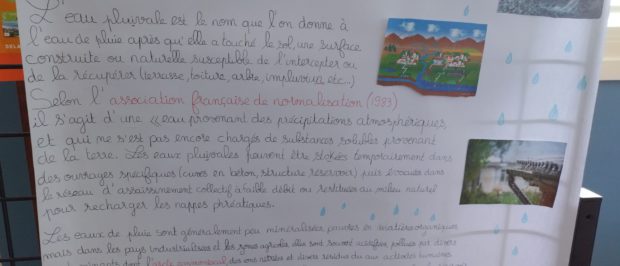 L'eau pluviale est le nom que l'on donne à
l'eau de pluie après qu'elle a touché le sol, une surface
construite ou naturelle susceptible de l'intercepter ou
de la récupérer (terrasse, toiture, arbre, impluvium etc...)
Selon l'association française de normalisation (1983)
il s'agit d'une « eau provenant des précipitations atmosphériques,
et qui ne s'est pas encore chargés de substances solubles provenant
de la terre. Les eaux pluviales peuvent être stockées temporairement dans
des ouvrages spécifiques (cuves en béton, structure réservoir) puis évacuées dans
le réseau d'assainissement collectif à faible débit ou restituées au milieu naturel
pour recharger les nappes phréatiques.
Les eaux de pluie sont généralement peu minéralisées, pauvres en matières organiques,
mais dans les pays industrialisés et les zones agricoles elles sont souvent acidifiées, polluées par divers
des ions nitrates et divers résidus du aux activités humaines